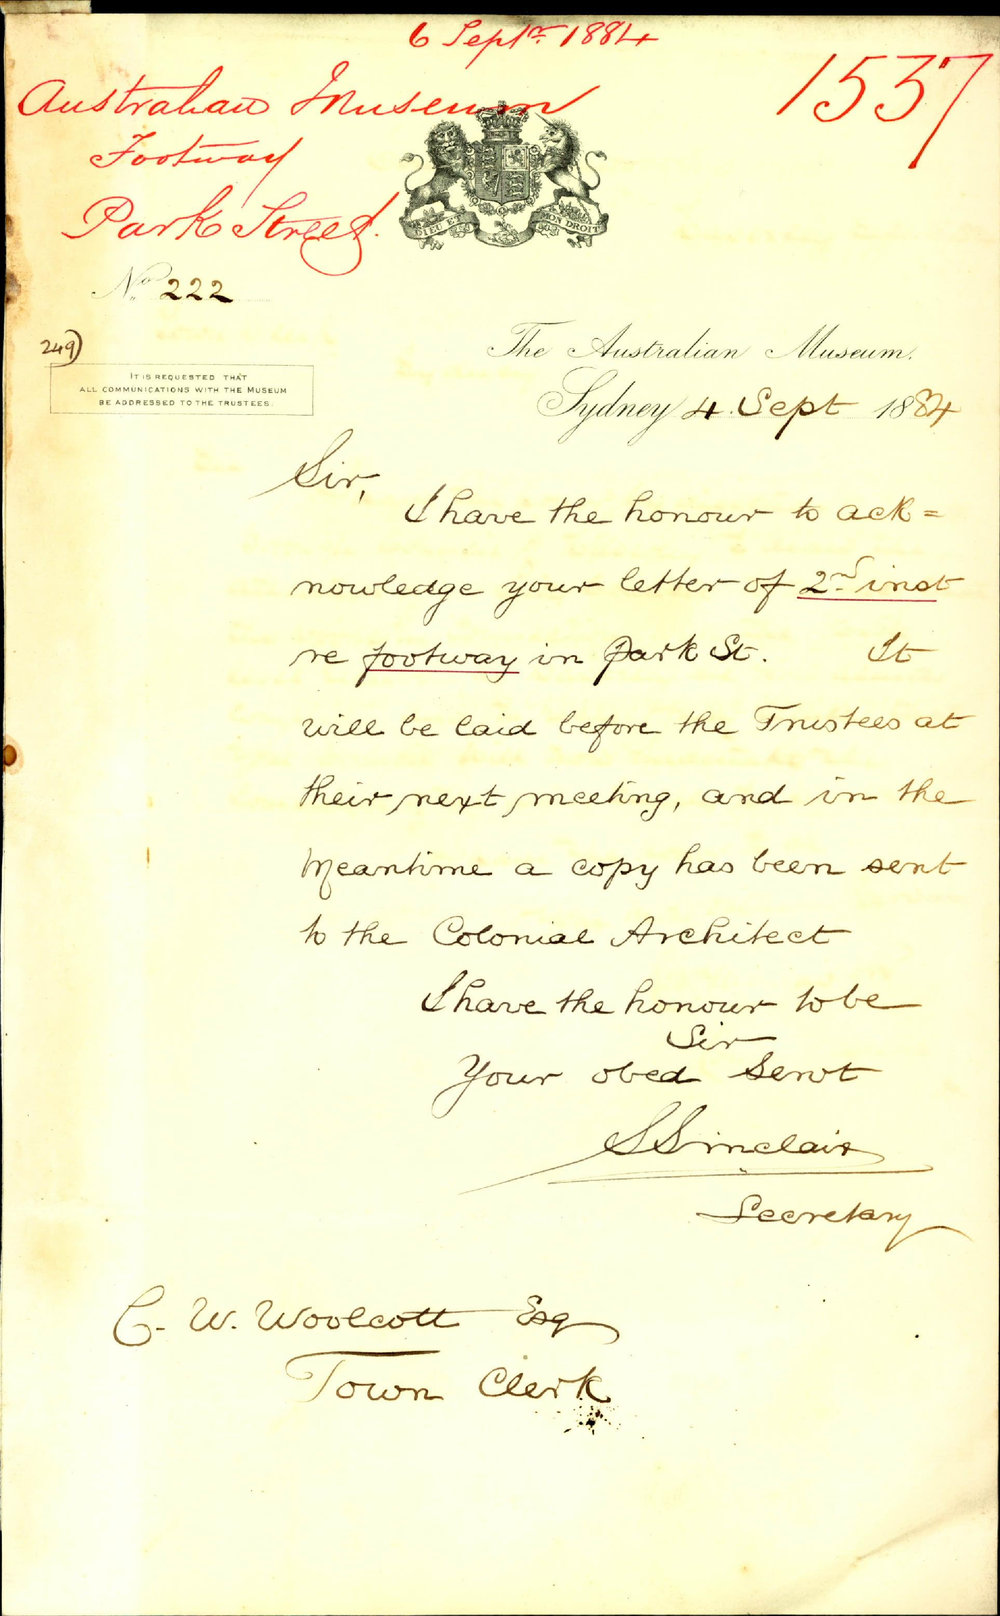 6 Septr. 1884
1537
Australian Museum
Footway
Park Street.
DIEU ET MON DROIT
No. 222
249)
IT IS REQUESTED THAT
ALL COMMUNICATIONS WITH THE MUSEUM
BE ADDRESSED TO THE TRUSTEES.
The Australian Museum.
Sydney 4 Sept 1884
Sir,
I have the honour to ack=
nowledge your letter of 2nd inst
re footway in Park St. It
will be laid before the Trustees at
their next meeting, and in the
meantime a copy has been sent
to the Colonial Architect
I have the honour to be
Sir
Your obed Servt
S Sinclair
Secretary
C. W. Woolcott Esq
Town Clerk